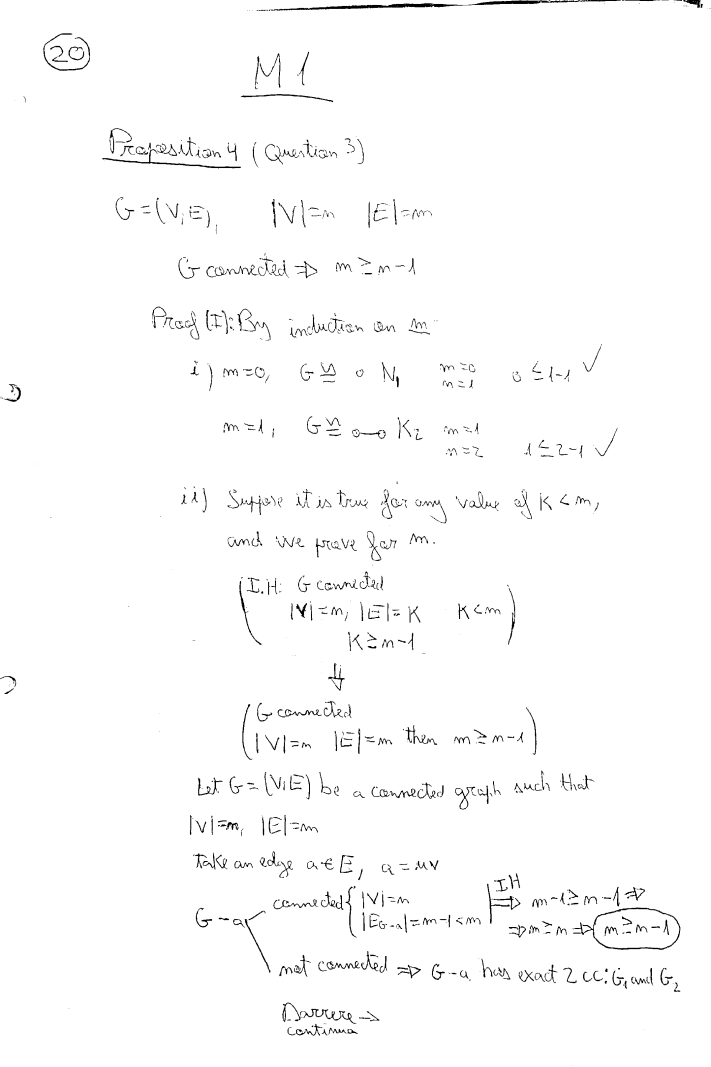 20
M1
Proposition 4 (Question 3)
G=(V,E), |V|=n |E|=m
G connected ⇒ m ≥ n-1
Proof (I): By induction on m
i) m=0, G ≅ o N₁ m=0 n=1 0 ≤ 1-1 ✓
m=1, G ≅ o-o K₂ m=1 n=2 1 ≤ 2-1 ✓
ii) Suppose it is true for any value of K < m,
and we prove for m.
(I.H: G connected
|V|=n, |E|=K K<m
K ≥ n-1)
⇓
(G connected
|V|=n |E|=m then m ≥ n-1)
Let G=(V,E) be a connected graph such that
|V|=n, |E|=m
Take an edge a ∈ E, a=uv
G-a
connected { |V|=n |E_{G-a}|=m-1<m | IH ⇒ m-1 ≥ n-1 ⇒
⇒ m ≥ n ⇒ m ≥ n-1
not connected ⇒ G-a has exact 2 cc: G₁ and G₂
Darrere →
continua